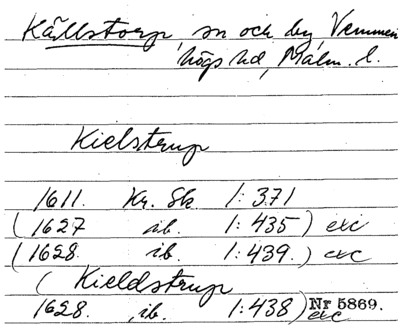 Källstorp, sn och by, Vemmen
högs hd, Malm. l.
Kielstrup
1611. Kr. Sk 1: 371
(1627 ib. 1: 435) exc
(1628. ib. 1: 439.) exc
(Kieldstrup
1628. ib. 1: 438) Nr 5869.
exc